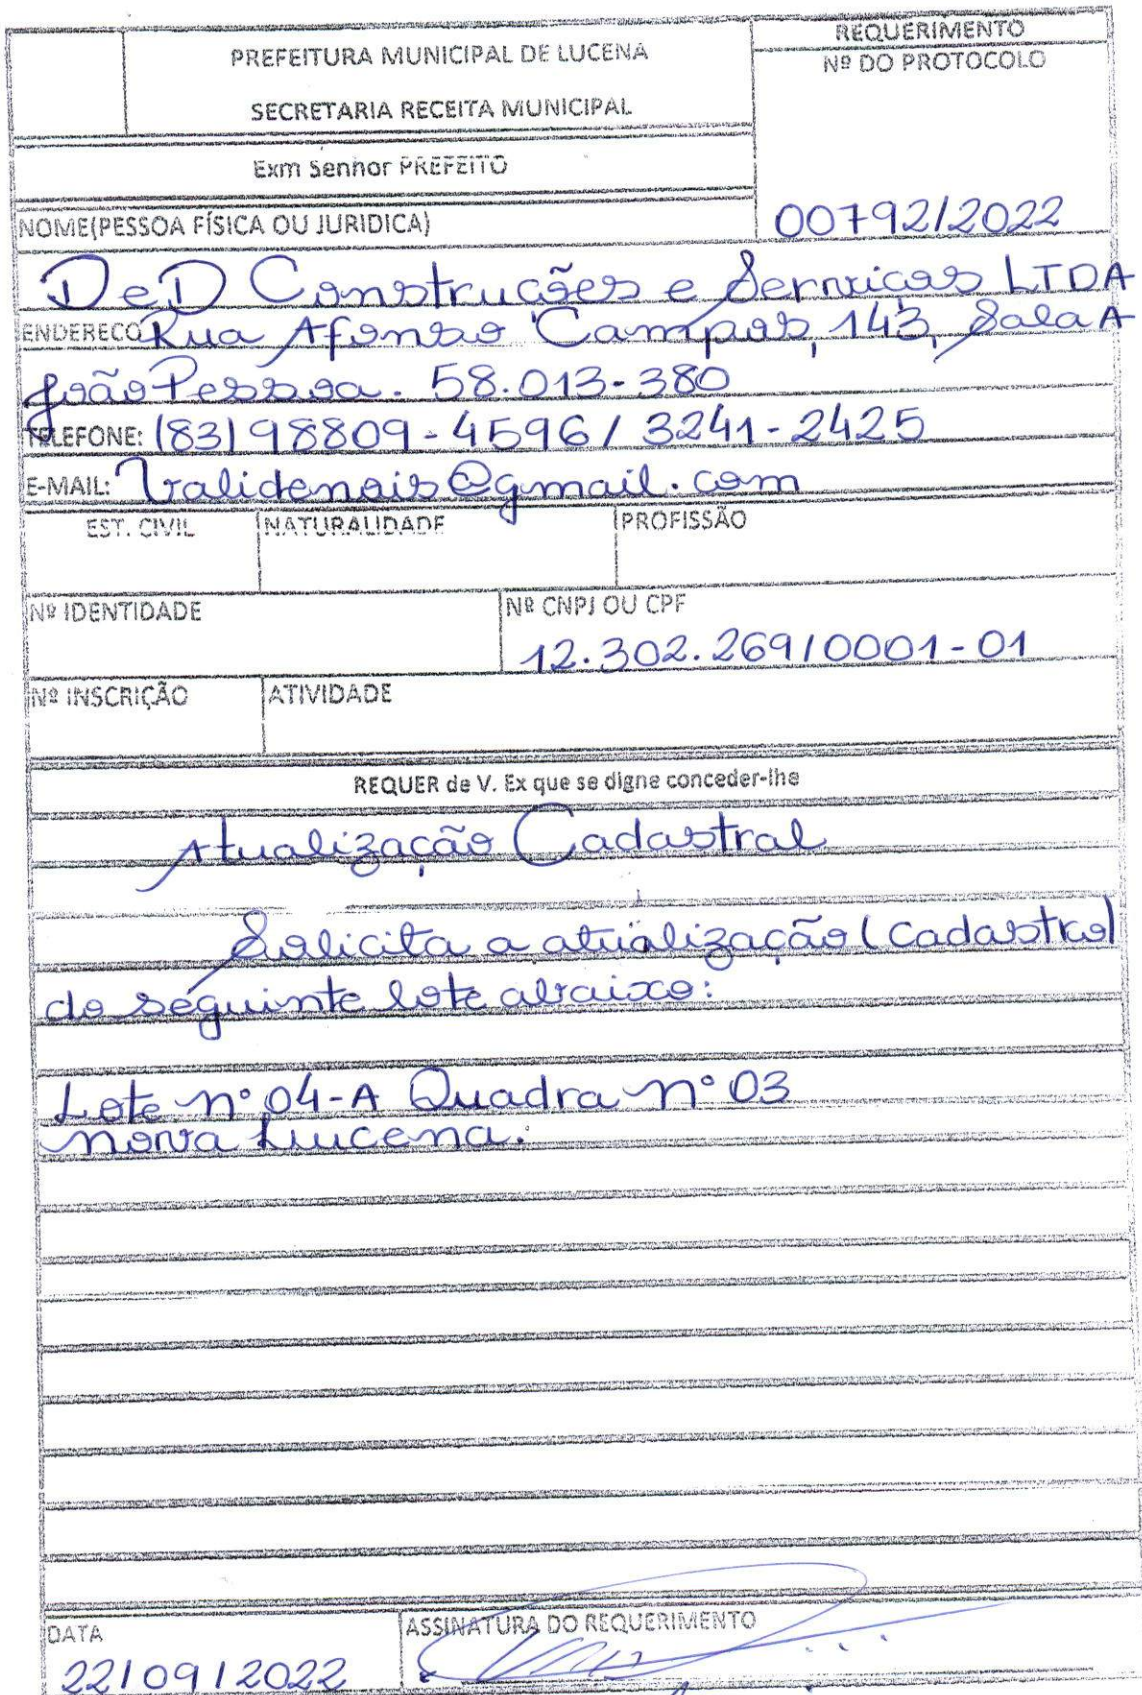 REQUERIMENTO
PREFEITURA MUNICIPAL DE LUCENA
Nº DO PROTOCOLO
SECRETARIA RECEITA MUNICIPAL
Exm Senhor PREFEITO
00792/2022
NOME(PESSOA FÍSICA OU JURIDICA)
DeD Construções e Serviços LTDA
ENDEREÇO Rua Afonso Campos, 143, Sala A
João Pessoa. 58.013-380
TELEFONE: (83) 98809-4596 / 3241-2425
E-MAIL: validenois@gmail.com
EST. CIVIL NATURALIDADE PROFISSÃO
Nº IDENTIDADE Nº CNPJ OU CPF
12.302.269/0001-01
Nº INSCRIÇÃO ATIVIDADE
REQUER de V. Ex que se digne conceder-lhe
Atualização Cadastral
Solicita a atualização (cadastro)
do seguinte lote abaixo:
Lote nº 04-A Quadra nº 03
nova Lucena.
DATA ASSINATURA DO REQUERIMENTO
22/09/2022